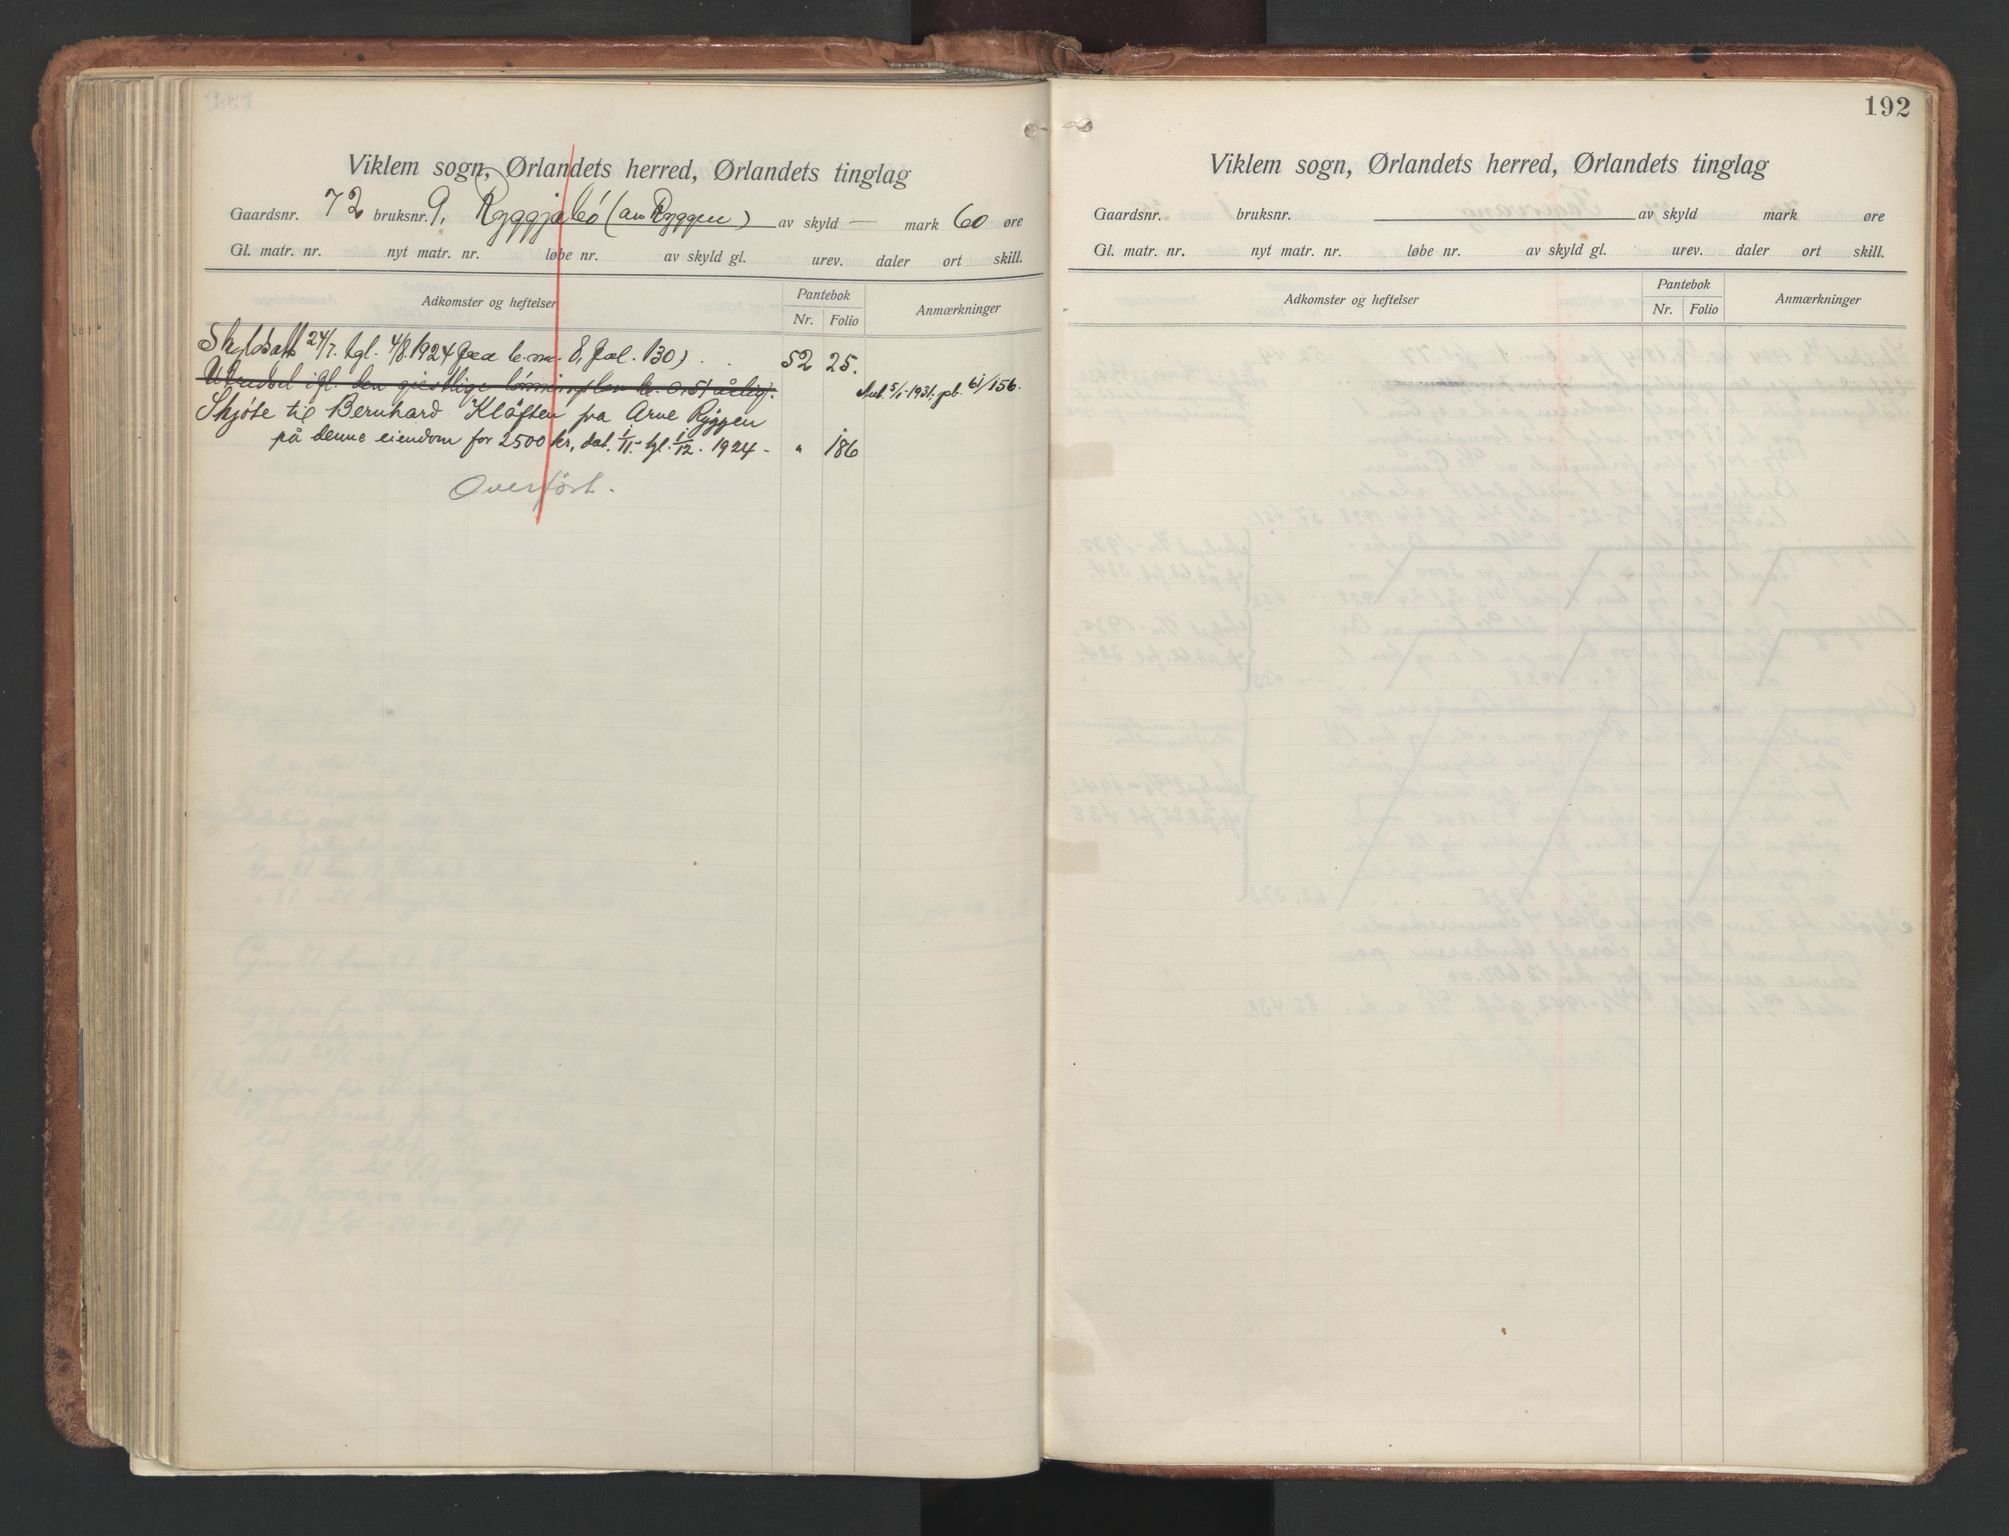 Viklem sogn, Ørlandets herred, Ørlandets tinglag
Gaardsnr. 72 bruksnr. 9, Ryggjabö (av Ryggen) av skyld — mark 60 øre
Gl. matr. nr. nyt matr. nr. løbe nr. av skyld gl. urev. daler ort skill.
Adkomster og heftelser Pantebok Nr. Folio Anmærkninger
Skyldsatt 24/7. tgl. 4/8. 1924 fra b. nr. 8, fol. 130) . 52 25.
igl. den giestlige kr. 0,51 årlig. Avl. 5/1-1931. pb. 61/156.
Skjöte til Bernhard Kläften fra Arne Ryggen
på denne eiendom for 2500 kr, dat. 1/11. tgl. 1/12. 1924 - " 186
Overfört.
192
Viklem sogn, Ørlandets herred, Ørlandets tinglag
Gaardsnr. bruksnr. av skyld mark øre
Gl. matr. nr. nyt matr. nr. løbe nr. av skyld gl. urev. daler ort skill.
Adkomster og heftelser Pantebok Nr. Folio Anmærkninger